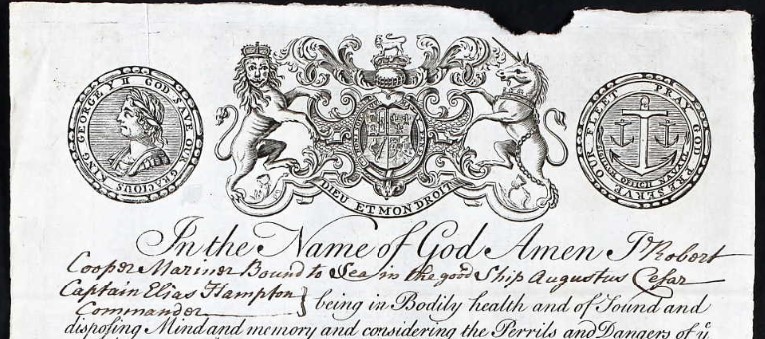 GOD SAVE OUR GRACIOUS KING GEORGE Yᴱ II
DIEU ET MON DROIT
PRAY GOD PRESERVE OUR FLEET
In the Name of God Amen I Robert
Cooper Mariner Bound to Sea in the good Ship Augustus Cesar
Captain Elias Hampton } being in Bodily health and of Sound and
Commander
disposing Mind and memory and considering the Perrils and Dangers of yᵉ